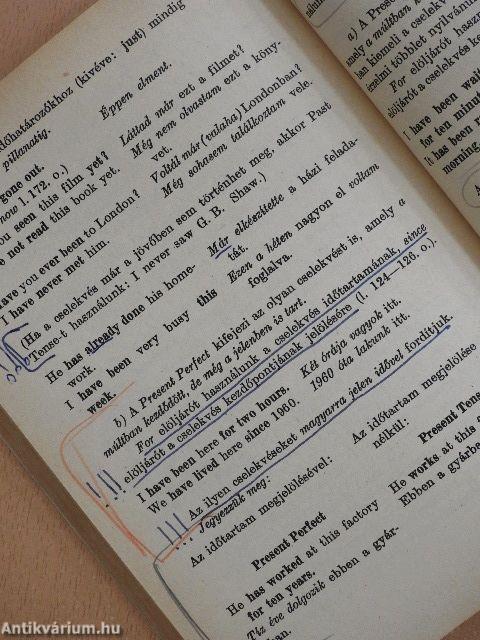 időhatározókhoz (kivéve: just) mindig
pillanatig.
gone out. Éppen elment.
now l. 172. o.)
you seen this film yet? Láttad már ezt a filmet?
not read this book yet. Még nem olvastam ezt a köny-
vet.
Have you ever been to London? Voltál már (valaha) Londonban?
I have never met him. Még sohasem találkoztam vele.
(Ha a cselekvés már a jövőben sem történhet meg, akkor Past
Tense-t használunk: I never saw G. B. Shaw.)
He has already done his home- Már elkészítette a házi felada-
work. tát.
I have been very busy this Ezen a héten nagyon el voltam
week. foglalva.
b) A Present Perfect kifejezi az olyan cselekvést is, amely a
múltban kezdődött, de még a jelenben is tart.
For elöljárót használunk a cselekvés időtartamának, since
elöljárót a cselekvés kezdőpontjának jelölésére (l. 124—126. o.).
I have been here for two hours. Két órája vagyok itt.
We have lived here since 1960. 1960 óta lakunk itt.
Az ilyen cselekvéseket magyarra jelen idővel fordítjuk.
Jegyezzük meg:
Az időtartam megjelölésével: Az időtartam megjelölése
nélkül:
Present Perfect Present Tens
He has worked at this factory He works at this
for ten years.
Tíz éve dolgozik ebben a gyár- Ebben a gyárbe
ban.
a) A Present
amely a múltban
lan kiemeli a cselekvés
érzelmi többlet nyilvánu
For elöljárót haszn
elöljárót a cselekvés ke
I have been wait
for ten minut
It has been
morning.
Antikvárium.hu